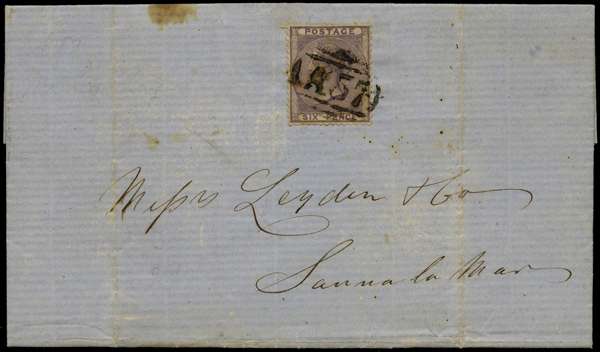 POSTAGE
A57
SIX PENCE
Messrs Leyden & Co
Sanna la Mar